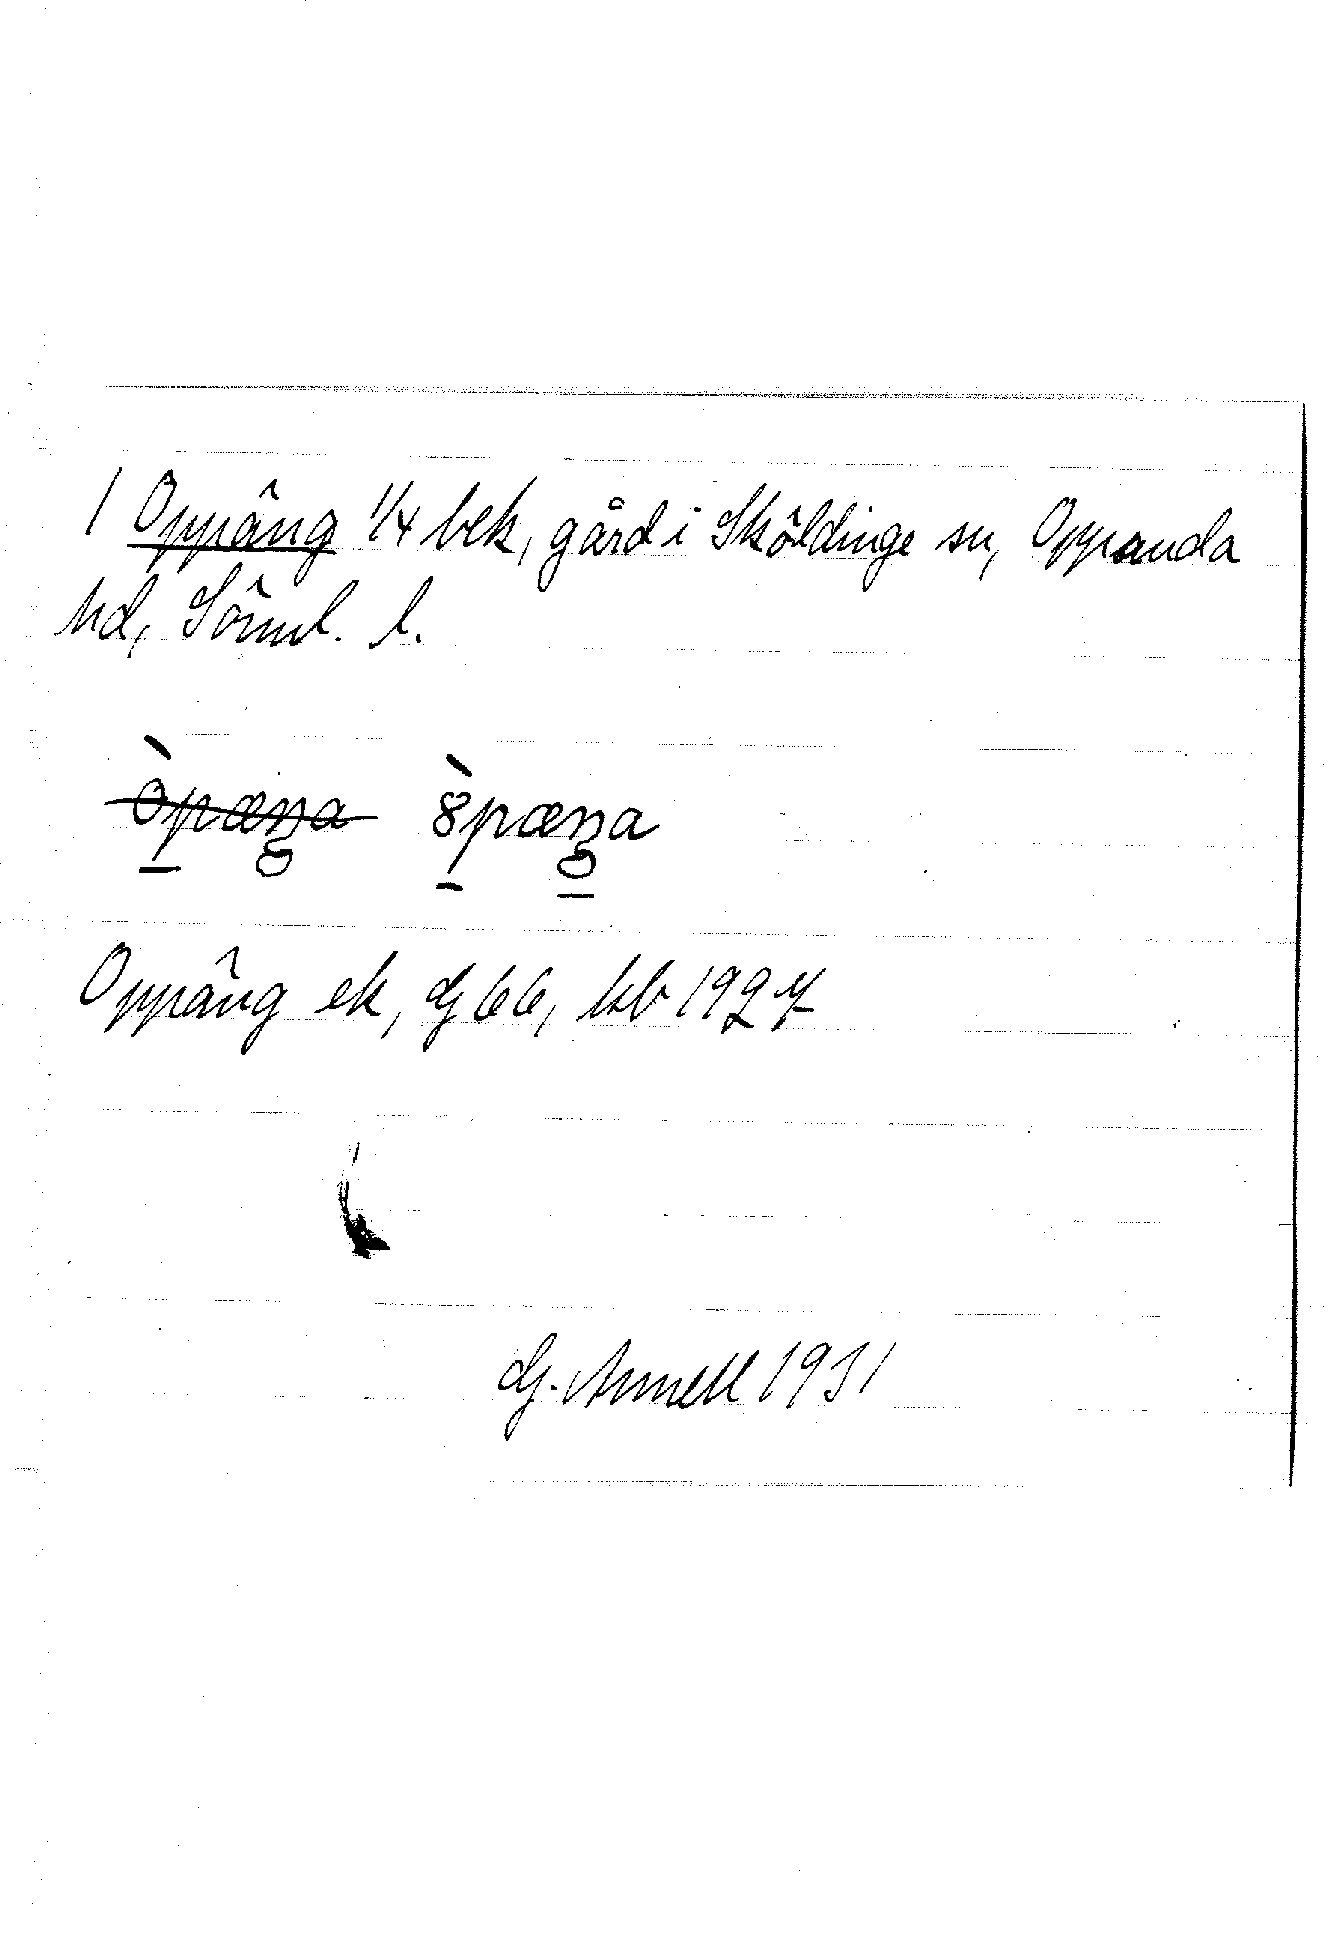 1 Oppäng 1/4 bek, gård i Sköldinge sn, Oppunda
hd, Söml. l.
òpæŋa 8̀pæŋa
Oppäng ek, Gj 66, kb 1927
Gj. Annell 1931